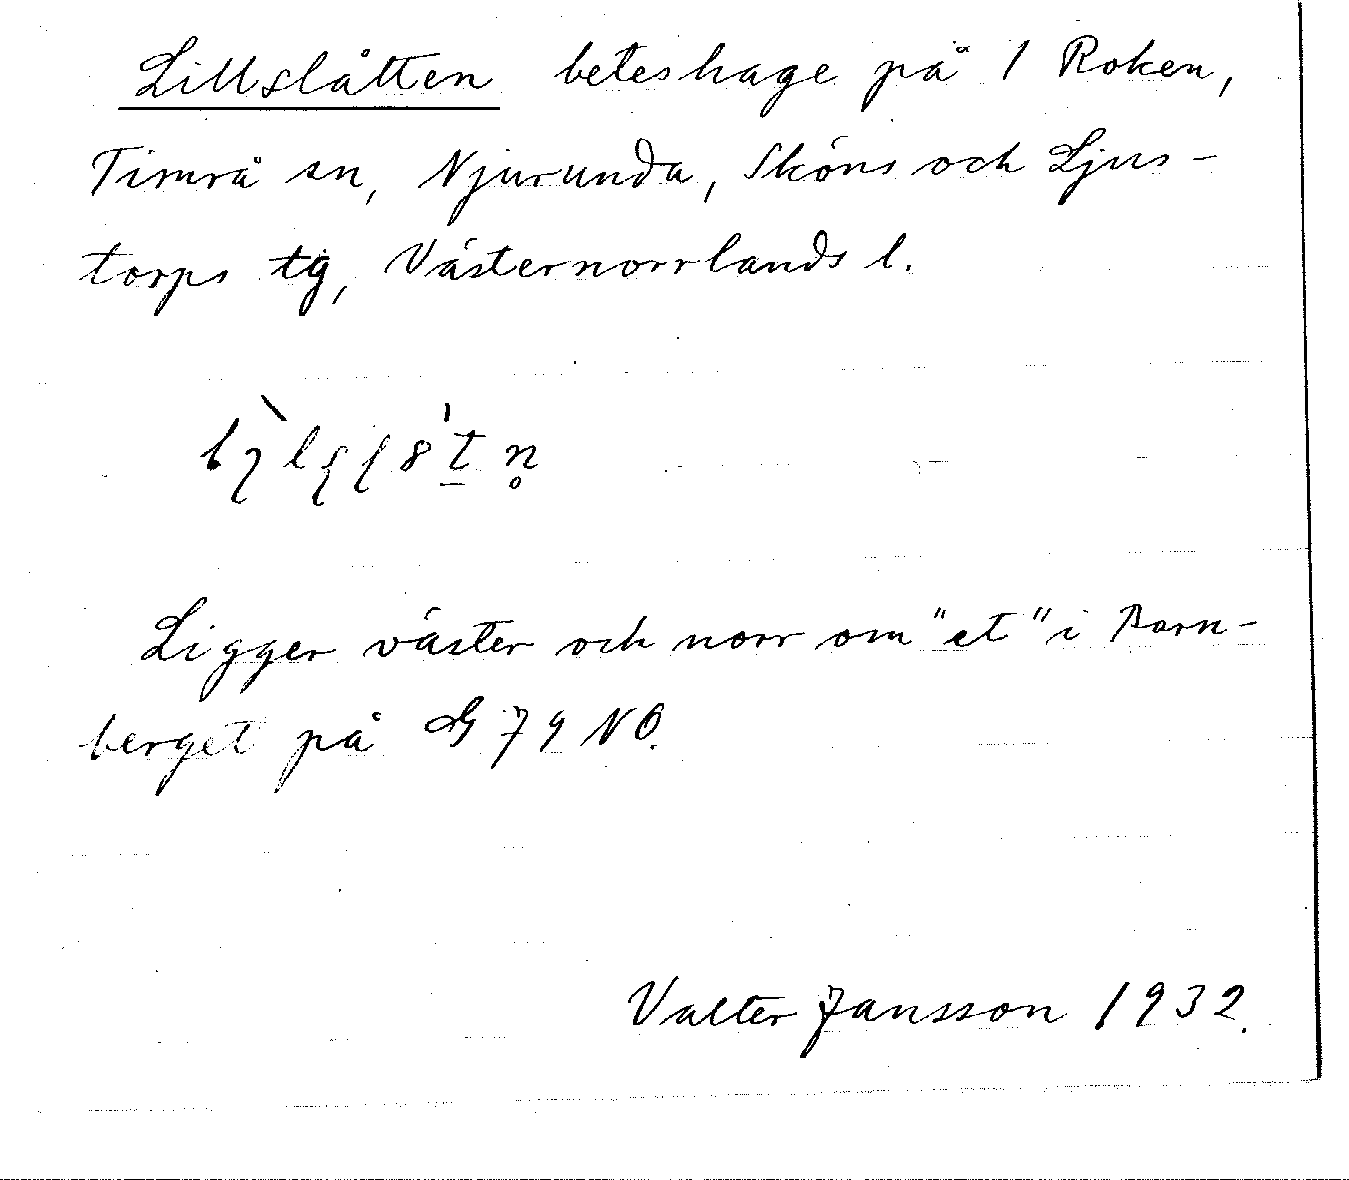 Lillslåtten beteshage på 1 Roken,
Timrå sn, Njurunda, Sköns och Ljus-
torps tg, Västernorrlands l.
Ligger väster och norr om "et" i Barn-
berget på G 79 NO.
Valter Jansson 1932.